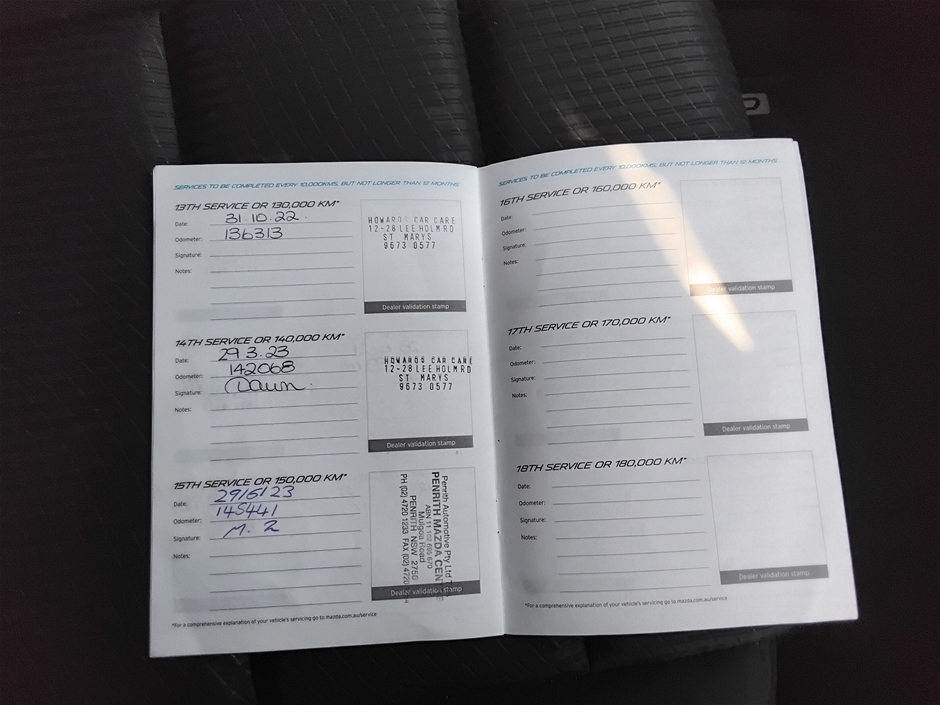 SERVICES TO BE COMPLETED EVERY 10,000KMS, BUT NOT LONGER THAN 12 MONTHS
13TH SERVICE OR 130,000 KM*
Date: 31.10.22
Odometer: 136313
Signature:
Notes:
HOWARDS CAR CARE
12-28 LEE HOLM RD
ST MARYS
9673 0577
Dealer validation stamp
14TH SERVICE OR 140,000 KM*
Date: 29.3.23
Odometer: 142068
Signature: Dawn.
Notes:
HOWARDS CAR CARE
12-28 LEE HOLM RD
ST MARYS
9673 0577
Dealer validation stamp
15TH SERVICE OR 150,000 KM*
Date: 29/6/23
Odometer: 145441
Signature: M. R
Notes:
Penrith Automotive Pty Ltd
PENRITH MAZDA CEN
ABN 11 102 695 670
Mulgoa Road
PENRITH NSW 2750
PH (02) 4720 1233 FAX (02) 4720
Dealer validation stamp
*For a comprehensive explanation of your vehicle's servicing go to mazda.com.au/service
SERVICES TO BE COMPLETED EVERY 10,000KMS, BUT NOT LONGER THAN 12 MONTHS
16TH SERVICE OR 160,000 KM*
Date:
Odometer:
Signature:
Notes:
Dealer validation stamp
17TH SERVICE OR 170,000 KM*
Date:
Odometer:
Signature:
Notes:
Dealer validation stamp
18TH SERVICE OR 180,000 KM*
Date:
Odometer:
Signature:
Notes:
Dealer validation stamp
*For a comprehensive explanation of your vehicle's servicing go to mazda.com.au/service